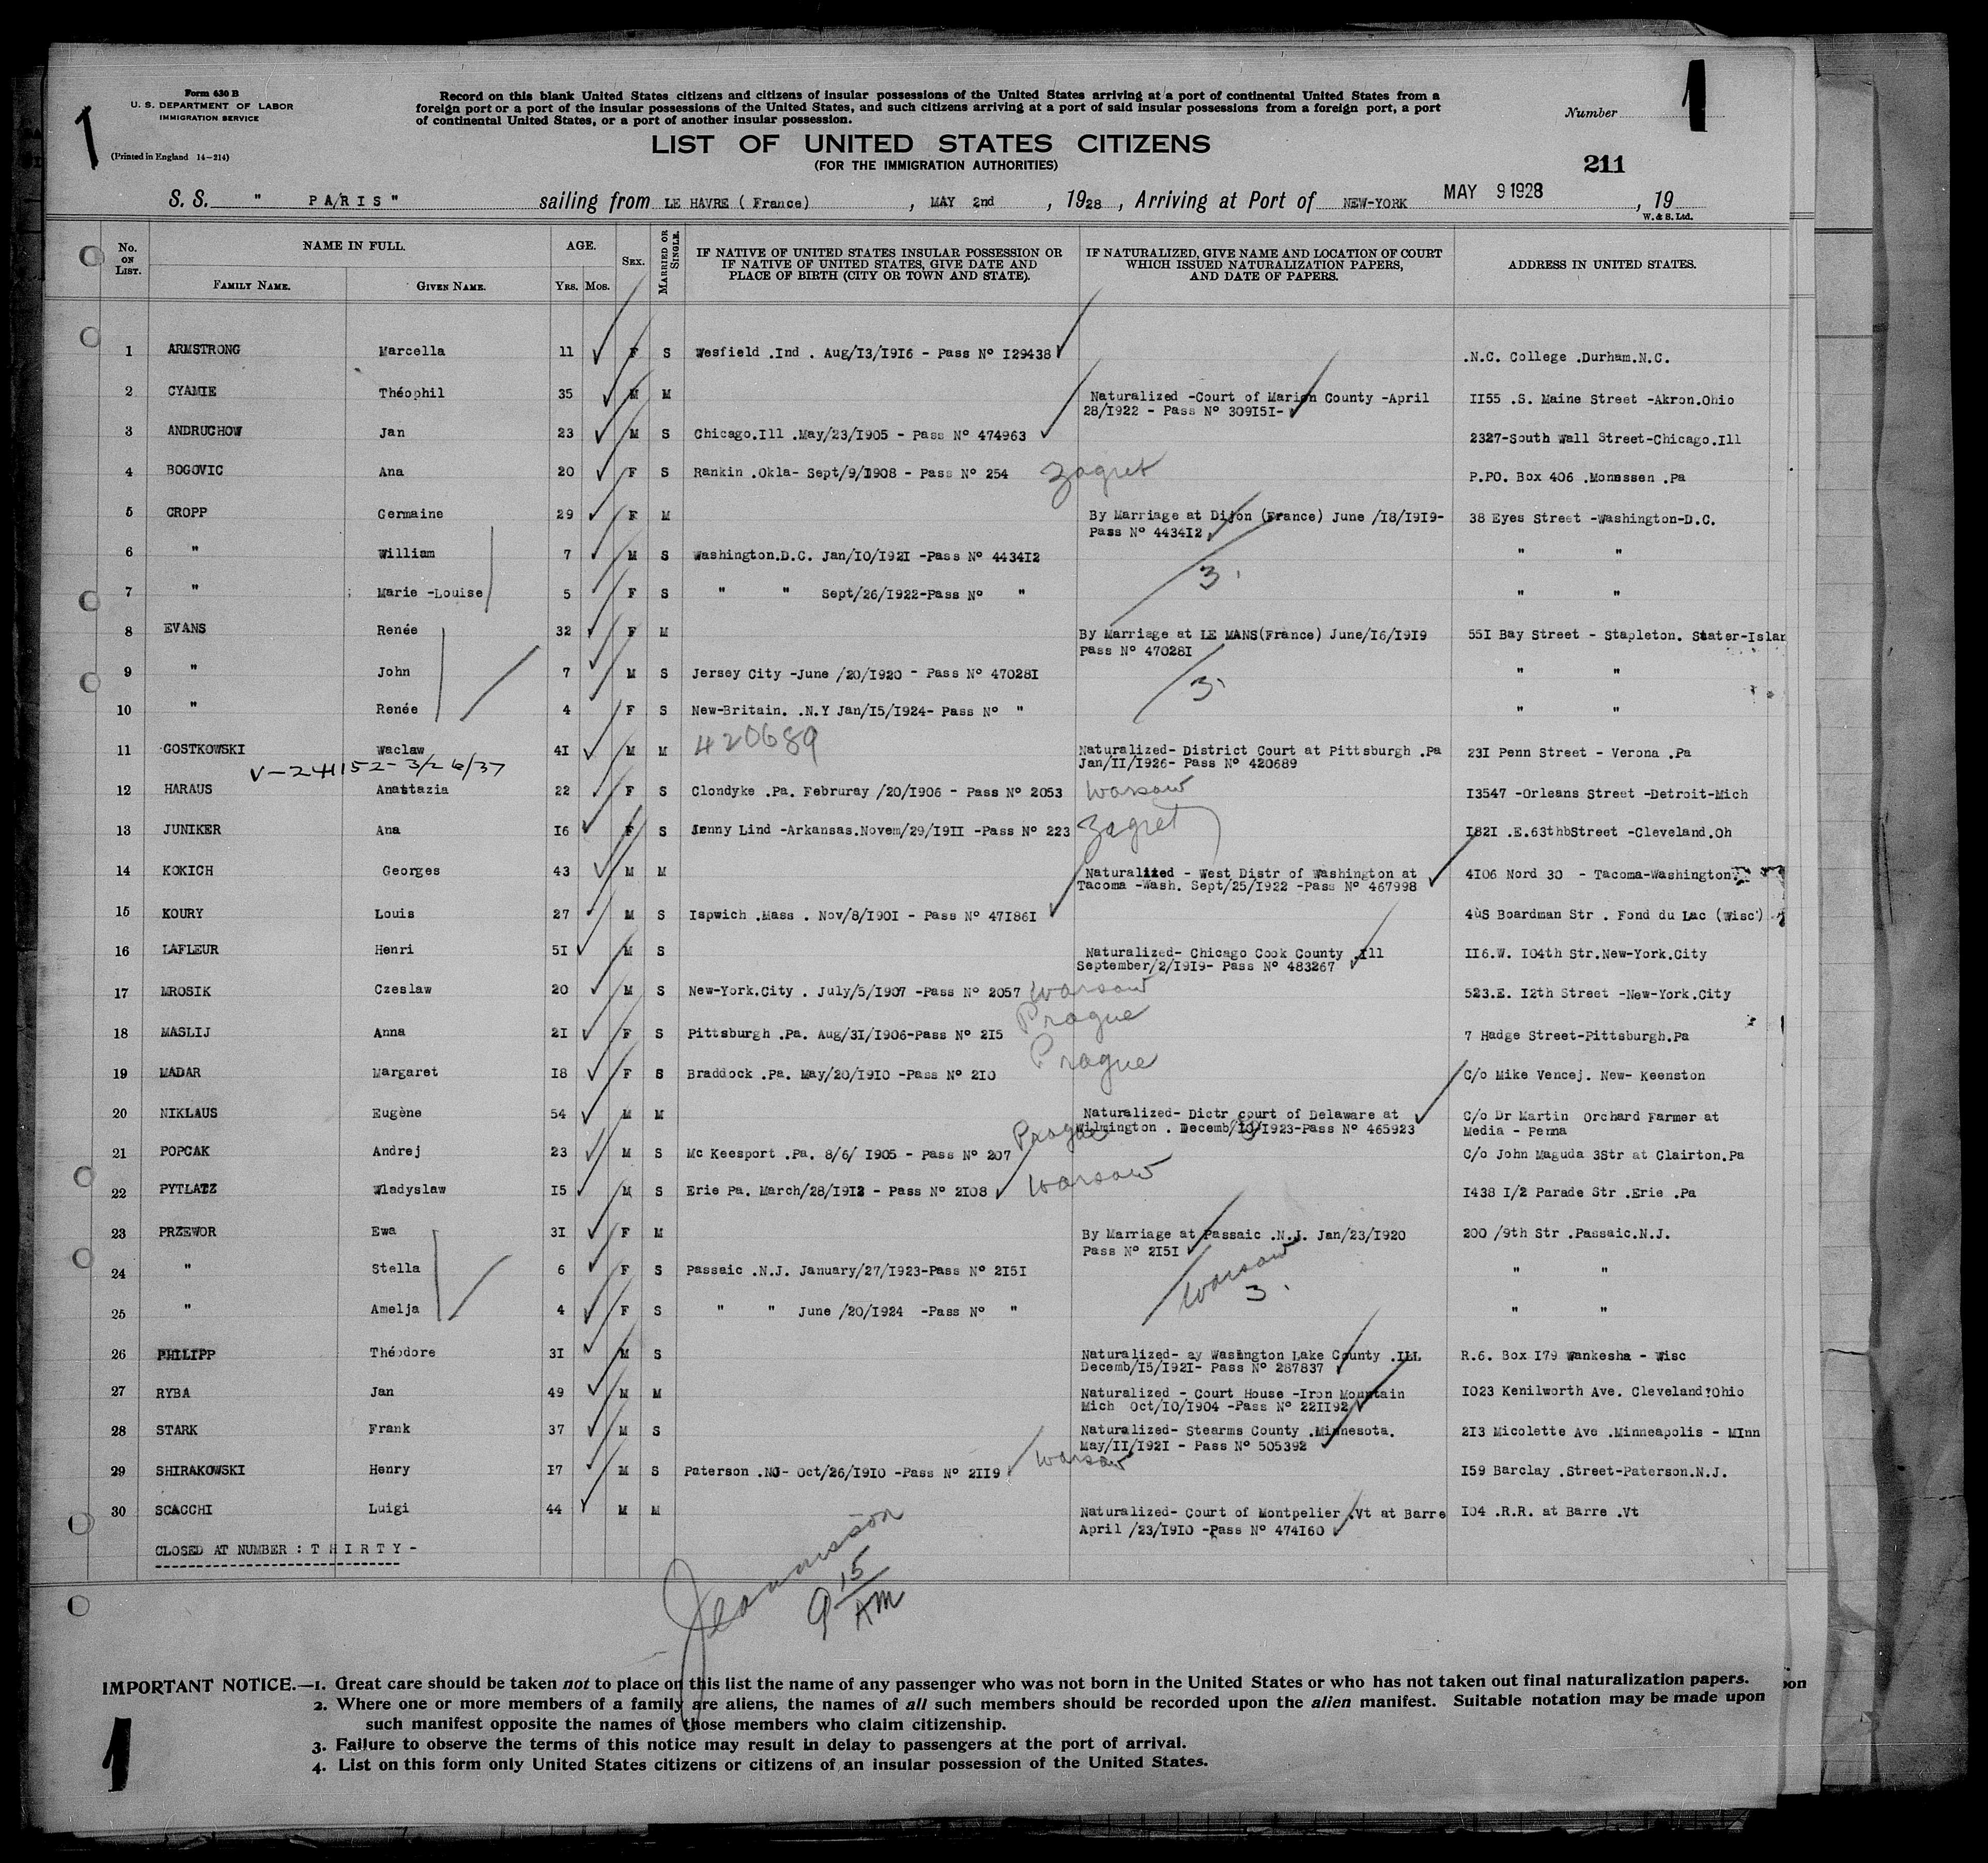 Form 630 B
U. S. DEPARTMENT OF LABOR
IMMIGRATION SERVICE
(Printed in England 14-214)
Record on this blank United States citizens and citizens of insular possessions of the United States arriving at a port of continental United States from a
foreign port or a port of the insular possessions of the United States, and such citizens arriving at a port of said insular possessions from a foreign port, a port
of continental United States, or a port of another insular possession.
Number 1
1
LIST OF UNITED STATES CITIZENS
(FOR THE IMMIGRATION AUTHORITIES)
211
S. S. " PARIS" sailing from LE HAVRE ( France) , MAY 2nd , 1928 , Arriving at Port of NEW-YORK MAY 9 1928 , 19
W. & S. Ltd.
No. ON LIST. NAME IN FULL. FAMILY NAME. GIVEN NAME. AGE. YRS. MOS. SEX. MARRIED OR SINGLE. IF NATIVE OF UNITED STATES INSULAR POSSESSION OR IF NATIVE OF UNITED STATES, GIVE DATE AND PLACE OF BIRTH (CITY OR TOWN AND STATE). IF NATURALIZED, GIVE NAME AND LOCATION OF COURT WHICH ISSUED NATURALIZATION PAPERS, AND DATE OF PAPERS. ADDRESS IN UNITED STATES.
1 ARMSTRONG Marcella 11 F S Wesfield .Ind . Aug/I3/I9I6 - Pass Nº I29438 .N.C. College .Durham.N.C.
2 CYAMIE Théophil 35 M M Naturalized -Court of Marion County -April II55 .S. Maine Street -Akron.Ohio
28/1922 - Pass Nº 309I5I-
3 ANDRUCHOW Jan 23 M S Chicago.Ill .May/23/1905 - Pass Nº 474963 2327-South Wall Street-Chicago.Ill
4 BOGOVIC Ana 20 F S Rankin .Okla- Sept/9/1908 - Pass Nº 254 Zagret P.PO. Box 406 .Monessen .Pa
5 CROPP Germaine 29 F M By Marriage at Dijon (France) June /I8/I9I9- 38 Eyes Street -Washington-D.C.
Pass Nº 4434I2
6 " William 7 M S Washington.D.C. Jan/IO/I92I -Pass Nº 4434I2 " "
3.
7 " Marie -Louise 5 F S " " Sept/26/I922-Pass Nº " " "
8 EVANS Renée 32 F M By Marriage at LE MANS(France) June/I6/I9I9 55I Bay Street - Stapleton. Stater-Islan
Pass Nº 47028I
9 " John 7 M S Jersey City -June /20/I920 - Pass Nº 47028I " "
3.
10 " Renée 4 F S New-Britain. .N.Y Jan/I5/I924- Pass Nº " " "
11 GOSTKOWSKI Waclaw 4I M M 420689 Naturalized- District Court at Pittsburgh .Pa 23I Penn Street - Verona .Pa
Jan/II/I926- Pass Nº 420689
V-241152-3/26/37
12 HARAUS Anastazia 22 F S Clondyke .Pa. Februray /20/I906 - Pass Nº 2053 Warsaw I3547 -Orleans Street -Detroit-Mich
13 JUNIKER Ana I6 F S Jenny Lind -Arkansas.Novem/29/I9II -Pass Nº 223 Zagret I82I .E.63thbStreet -Cleveland.Oh
14 KOKICH Georges 43 M M Naturalized - West Distr of Washington at 4I06 Nord 30 - Tacoma-Washington
Tacoma -Wash. Sept/25/I922 -Pass Nº 467998
15 KOURY Louis 27 M S Ispwich .Mass . Nov/8/I90I - Pass Nº 47I86I 4ùS Boardman Str . Fond du Lac (Wisc)
16 LAFLEUR Henri 5I M S Naturalized- Chicago Cook County .Ill II6.W. I04th Str.New-York.City
September/2/I9I9- Pass Nº 483267
17 MROSIK Czeslaw 20 M S New-York.City . July/5/I907 -Pass Nº 2057 Warsaw 523.E. I2th Street -New-York.City
18 MASLIJ Anna 2I F S Pittsburgh .Pa. Aug/3I/I906-Pass Nº 2I5 Prague 7 Hadge Street-Pittsburgh.Pa
19 MADAR Margaret I8 F S Braddock .Pa. May/20/I9I0 -Pass Nº 2IO Prague C/o Mike Vencej. New- Keenston
20 NIKLAUS Eugène 54 M M Naturalized- Dictr court of Delaware at C/o Dr Martin Orchard Farmer at
Wilmington . Decemb/10/I923-Pass Nº 465923 Media - Penna
21 POPCAK Andrej 23 M S Mc Keesport .Pa. 8/6/ I905 - Pass Nº 207 Prague C/o John Maguda 3Str at Clairton.Pa
22 PYTLATZ Wladyslaw I5 M S Erie Pa. March/28/I9I2 - Pass Nº 2I08 Warsaw I438 I/2 Parade Str .Erie .Pa
23 PRZEWOR Ewa 3I F M By Marriage at Passaic .N.J. Jan/23/I920 200 /9th Str .Passaic.N.J.
Pass Nº 2I5I
24 " Stella 6 F S Passaic .N.J. January/27/I923-Pass Nº 2I5I Warsaw " "
3.
25 " Amelja 4 F S " " June /20/I924 -Pass Nº " " "
26 PHILIPP Théodore 3I M S Naturalized- ay Washngton Lake County .ILL R.6. Box I79 Wankesha - Wisc
Decemb/I5/I92I- Pass Nº 287837
27 RYBA Jan 49 M M Naturalized - Court House -Iron Mountain I023 Kenilworth Ave. Cleveland?Ohio
Mich Oct/IO/I904 -Pass Nº 22II92
28 STARK Frank 37 M S Naturalized- Stearms County .Minnesota. 2I3 Micolette Ave .Minneapolis - MInn
May/II/I92I - Pass Nº 505392
29 SHIRAKOWSKI Henry I7 M S Paterson .NJ- Oct/26/I9I0 -Pass Nº 2II9 Warsaw I59 Barclay .Street-Paterson.N.J.
30 SCACCHI Luigi 44 M M Naturalized- Court of Montpelier .Vt at Barre I04 .R.R. at Barre .Vt
April /23/I9I0 -Pass Nº 474I60
CLOSED AT NUMBER : T H I R T Y -
9 15 AM
IMPORTANT NOTICE.—1. Great care should be taken not to place on this list the name of any passenger who was not born in the United States or who has not taken out final naturalization papers.
2. Where one or more members of a family are aliens, the names of all such members should be recorded upon the alien manifest. Suitable notation may be made upon
such manifest opposite the names of those members who claim citizenship.
3. Failure to observe the terms of this notice may result in delay to passengers at the port of arrival.
4. List on this form only United States citizens or citizens of an insular possession of the United States.
1